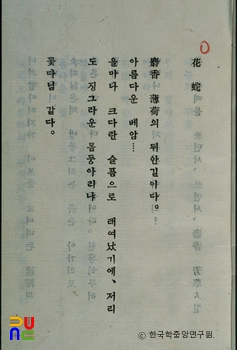 花蛇
麝香 薄荷의 뒤안길이다。
아름다운 베암…
을마다 크다란 슬픔으로 태여났기에、저리
도 징그라운 몸뚱아리냐
꽃다님 같다。
PUNE
ⓒ 한국학중앙연구원